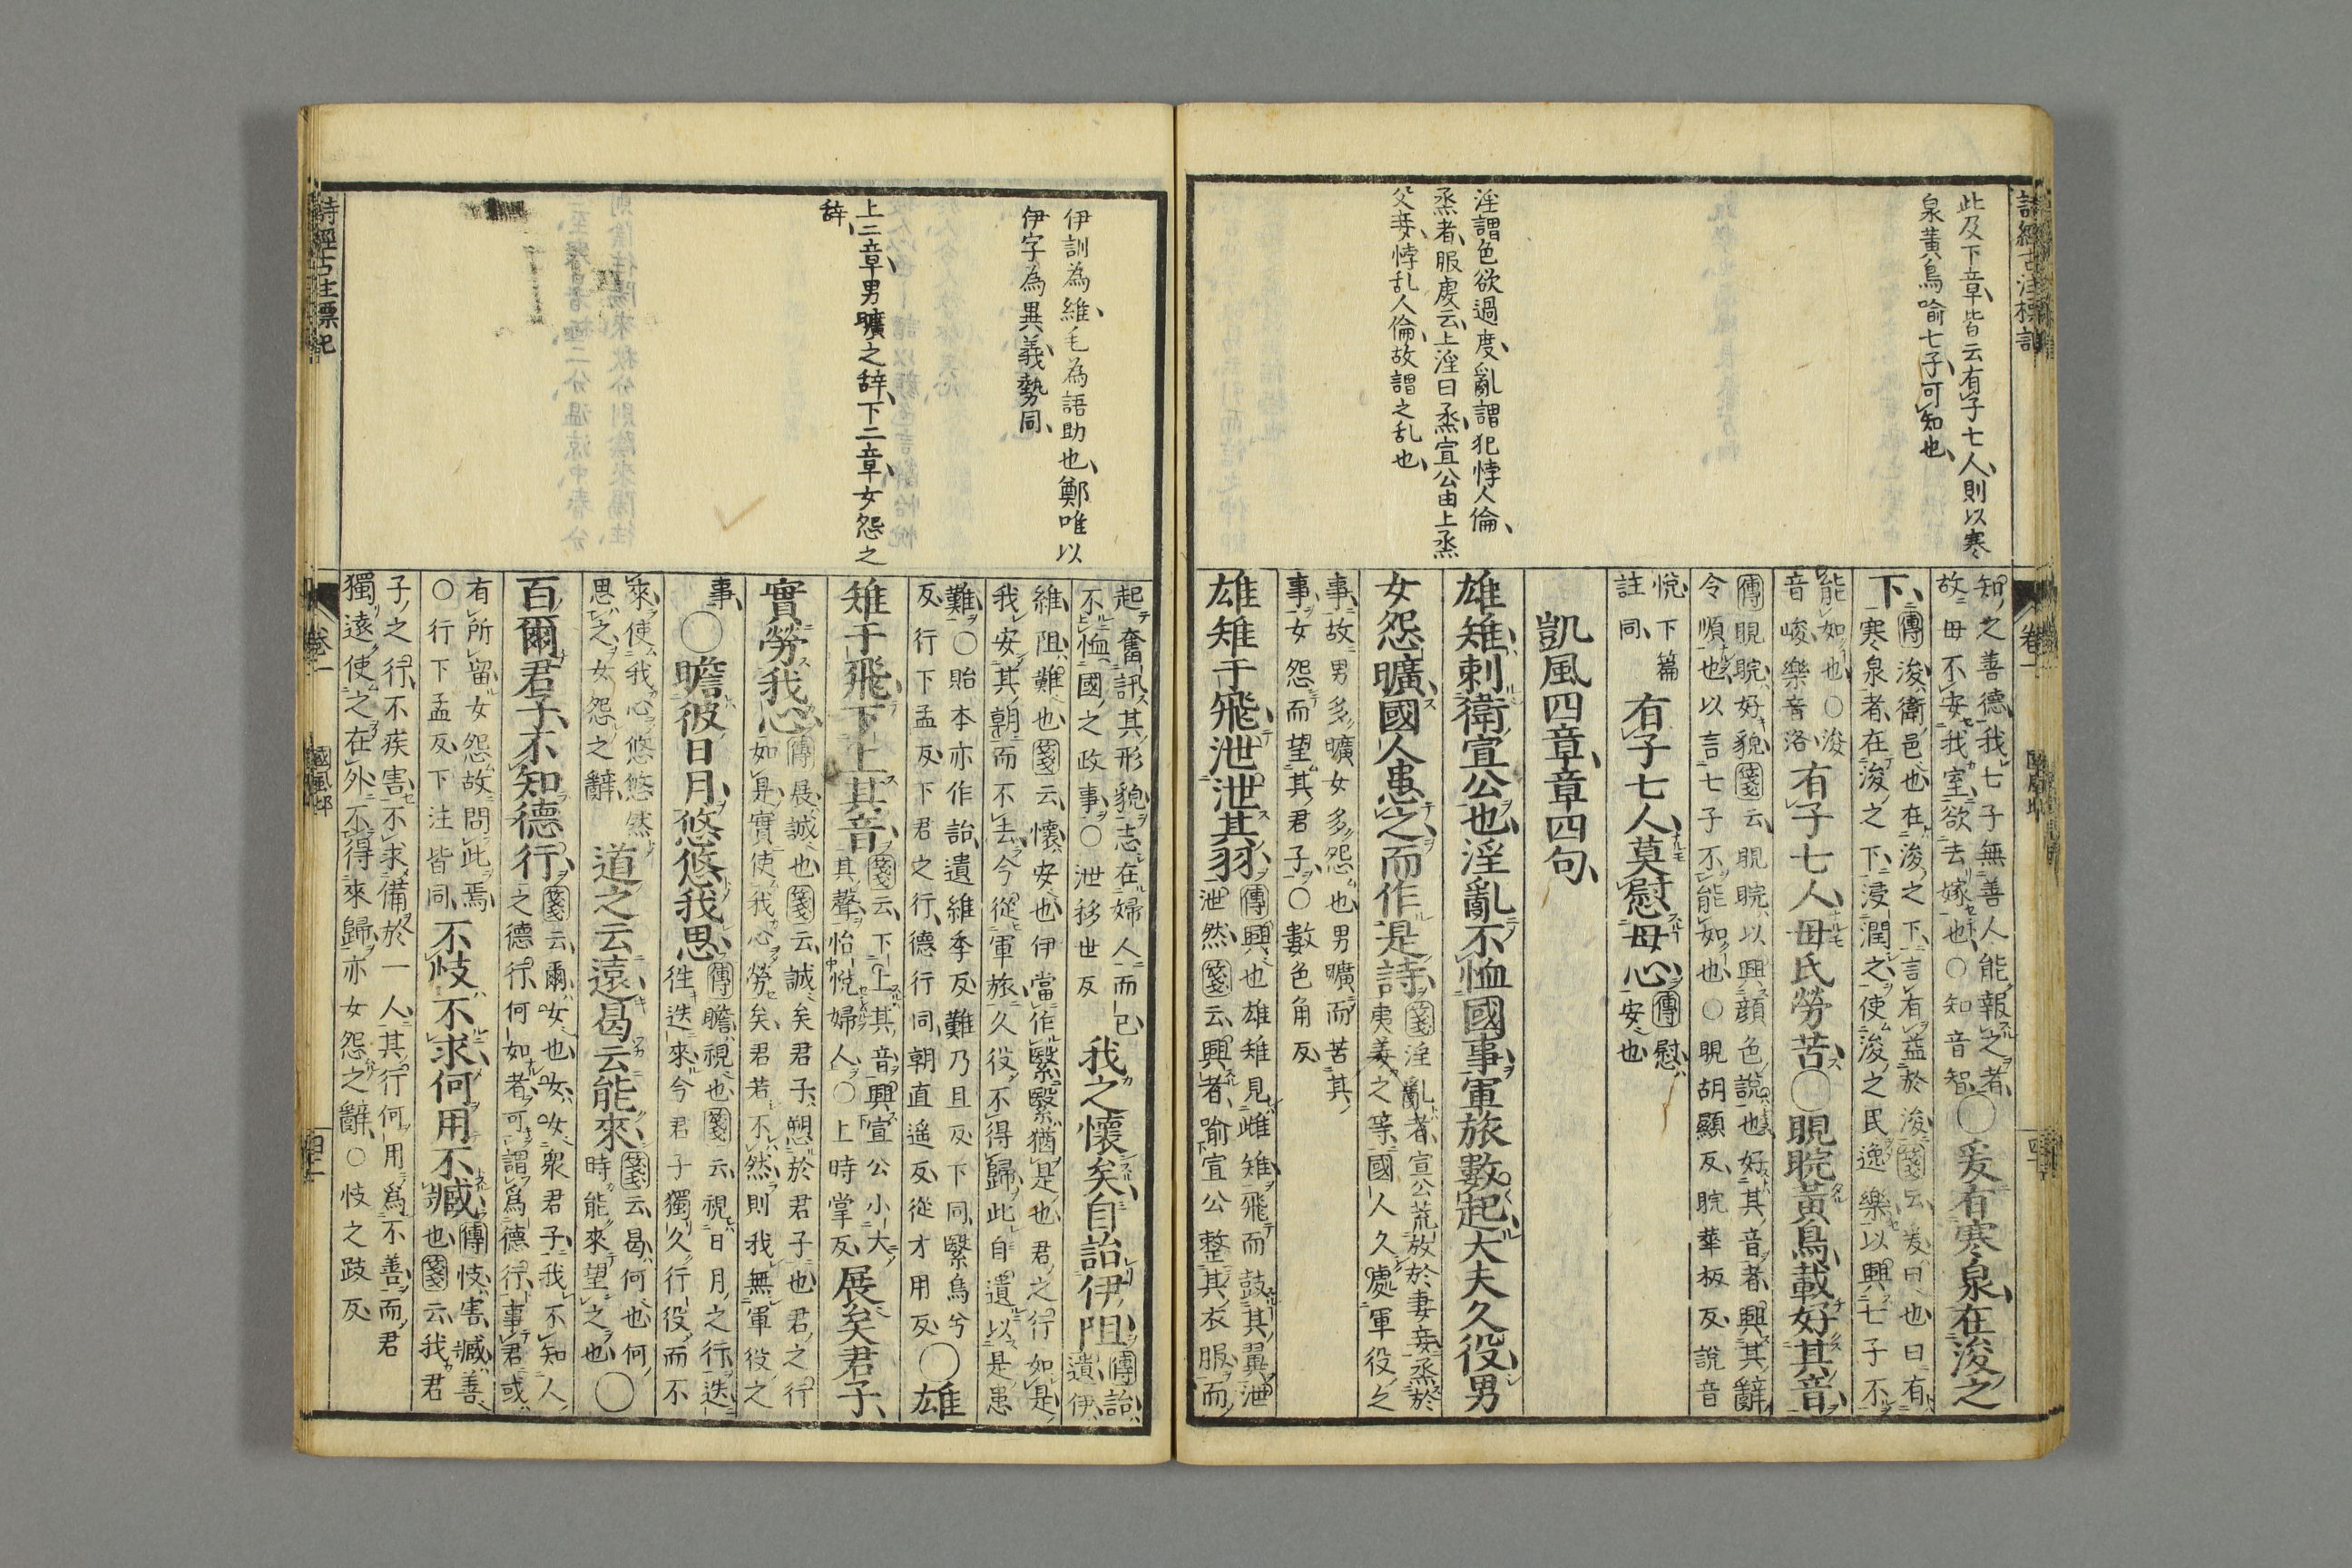 詩經古注標記
卷一
此及下章皆云有子七人則以寒
泉黃鳥喻七子可知也
淫謂色欲過度亂謂犯悖人倫
烝者服虔云上淫曰烝宣公由上烝
父妾悖乱人倫故謂之乱也
知之善德我七子無善人能報之者
故母不安我室欲去嫁也○知音智
○爰有寒泉在浚之
下
傳浚衛邑也在浚之下言有益於浚箋云爰曰也曰有
寒泉者在浚之下浸潤之使浚之民逸樂以興七子不
能如也○浚
音峻樂音洛
有子七人母氏勞苦○睍睆黃鳥載好其音
傳睍睆好貌箋云睍睆以興顏色說也好其音者興其辭
令順也以言七子不能如也○睍胡顯反睆華板反說音
悅下篇
註同
有子七人莫慰母心
傳慰
安也
凱風四章章四句
雄雉刺衛宣公也淫亂不恤國事軍旅數起大夫久役男
女怨曠國人患之而作是詩
箋淫亂者宣公荒放於妻妾烝於
夷姜之等國人久處軍役之
事故男多曠女多怨也男曠而苦其
事女怨而望其君子○數色角反
雄雉于飛泄泄其羽
傳興也雄雉見雌雉飛而鼓其翼泄
泄然箋云興者喻宣公整其衣服而
伊訓為維毛為語助也鄭唯以
伊字為異義勢同
上二章男曠之辞下二章女怨之
辞
起奮訊其形貌志在婦人而已
不恤國之政事○泄移世反
我之懷矣自詒伊阻
傳詒
遺伊
維阻難也箋云懷安也伊當作繄繄猶是也君之行如是
我安其朝而不去今從軍旅久役不得歸此自遺以是患
難○貽本亦作詒遺維季反難乃且反下同繄烏兮
反行下孟反下君之行德行同朝直遙反從才用反
○雄
雉于飛下上其音
箋云下上其音興宣公小大
其聲怡悅婦人○上時掌反
展矣君子
實勞我心
傳展誠也箋云誠矣君子愬於君子也君之行
如是實使我心勞矣君若不然則我無軍役之
事
○瞻彼日月悠悠我思
傳瞻視也箋云視日月之行迭
徃迭來今君子獨久行役而不
來使我心悠悠然
思之女怨之辭
道之云遠曷云能來
箋云曷何也何
時能來望之也
○
百爾君子不知德行
箋云爾女也女女衆君子我不知人
之德行何如者可謂爲德行事君或
有所留女怨故問此焉
○行下孟反下注皆同
不忮不求何用不臧
傳忮害臧善
也箋云我君
子之行不疾害不求備於一人其行何用爲不善而君
獨遠使之在外不得來歸亦女怨之辭○忮之跂反
詩經古注標記
卷一
國風邶